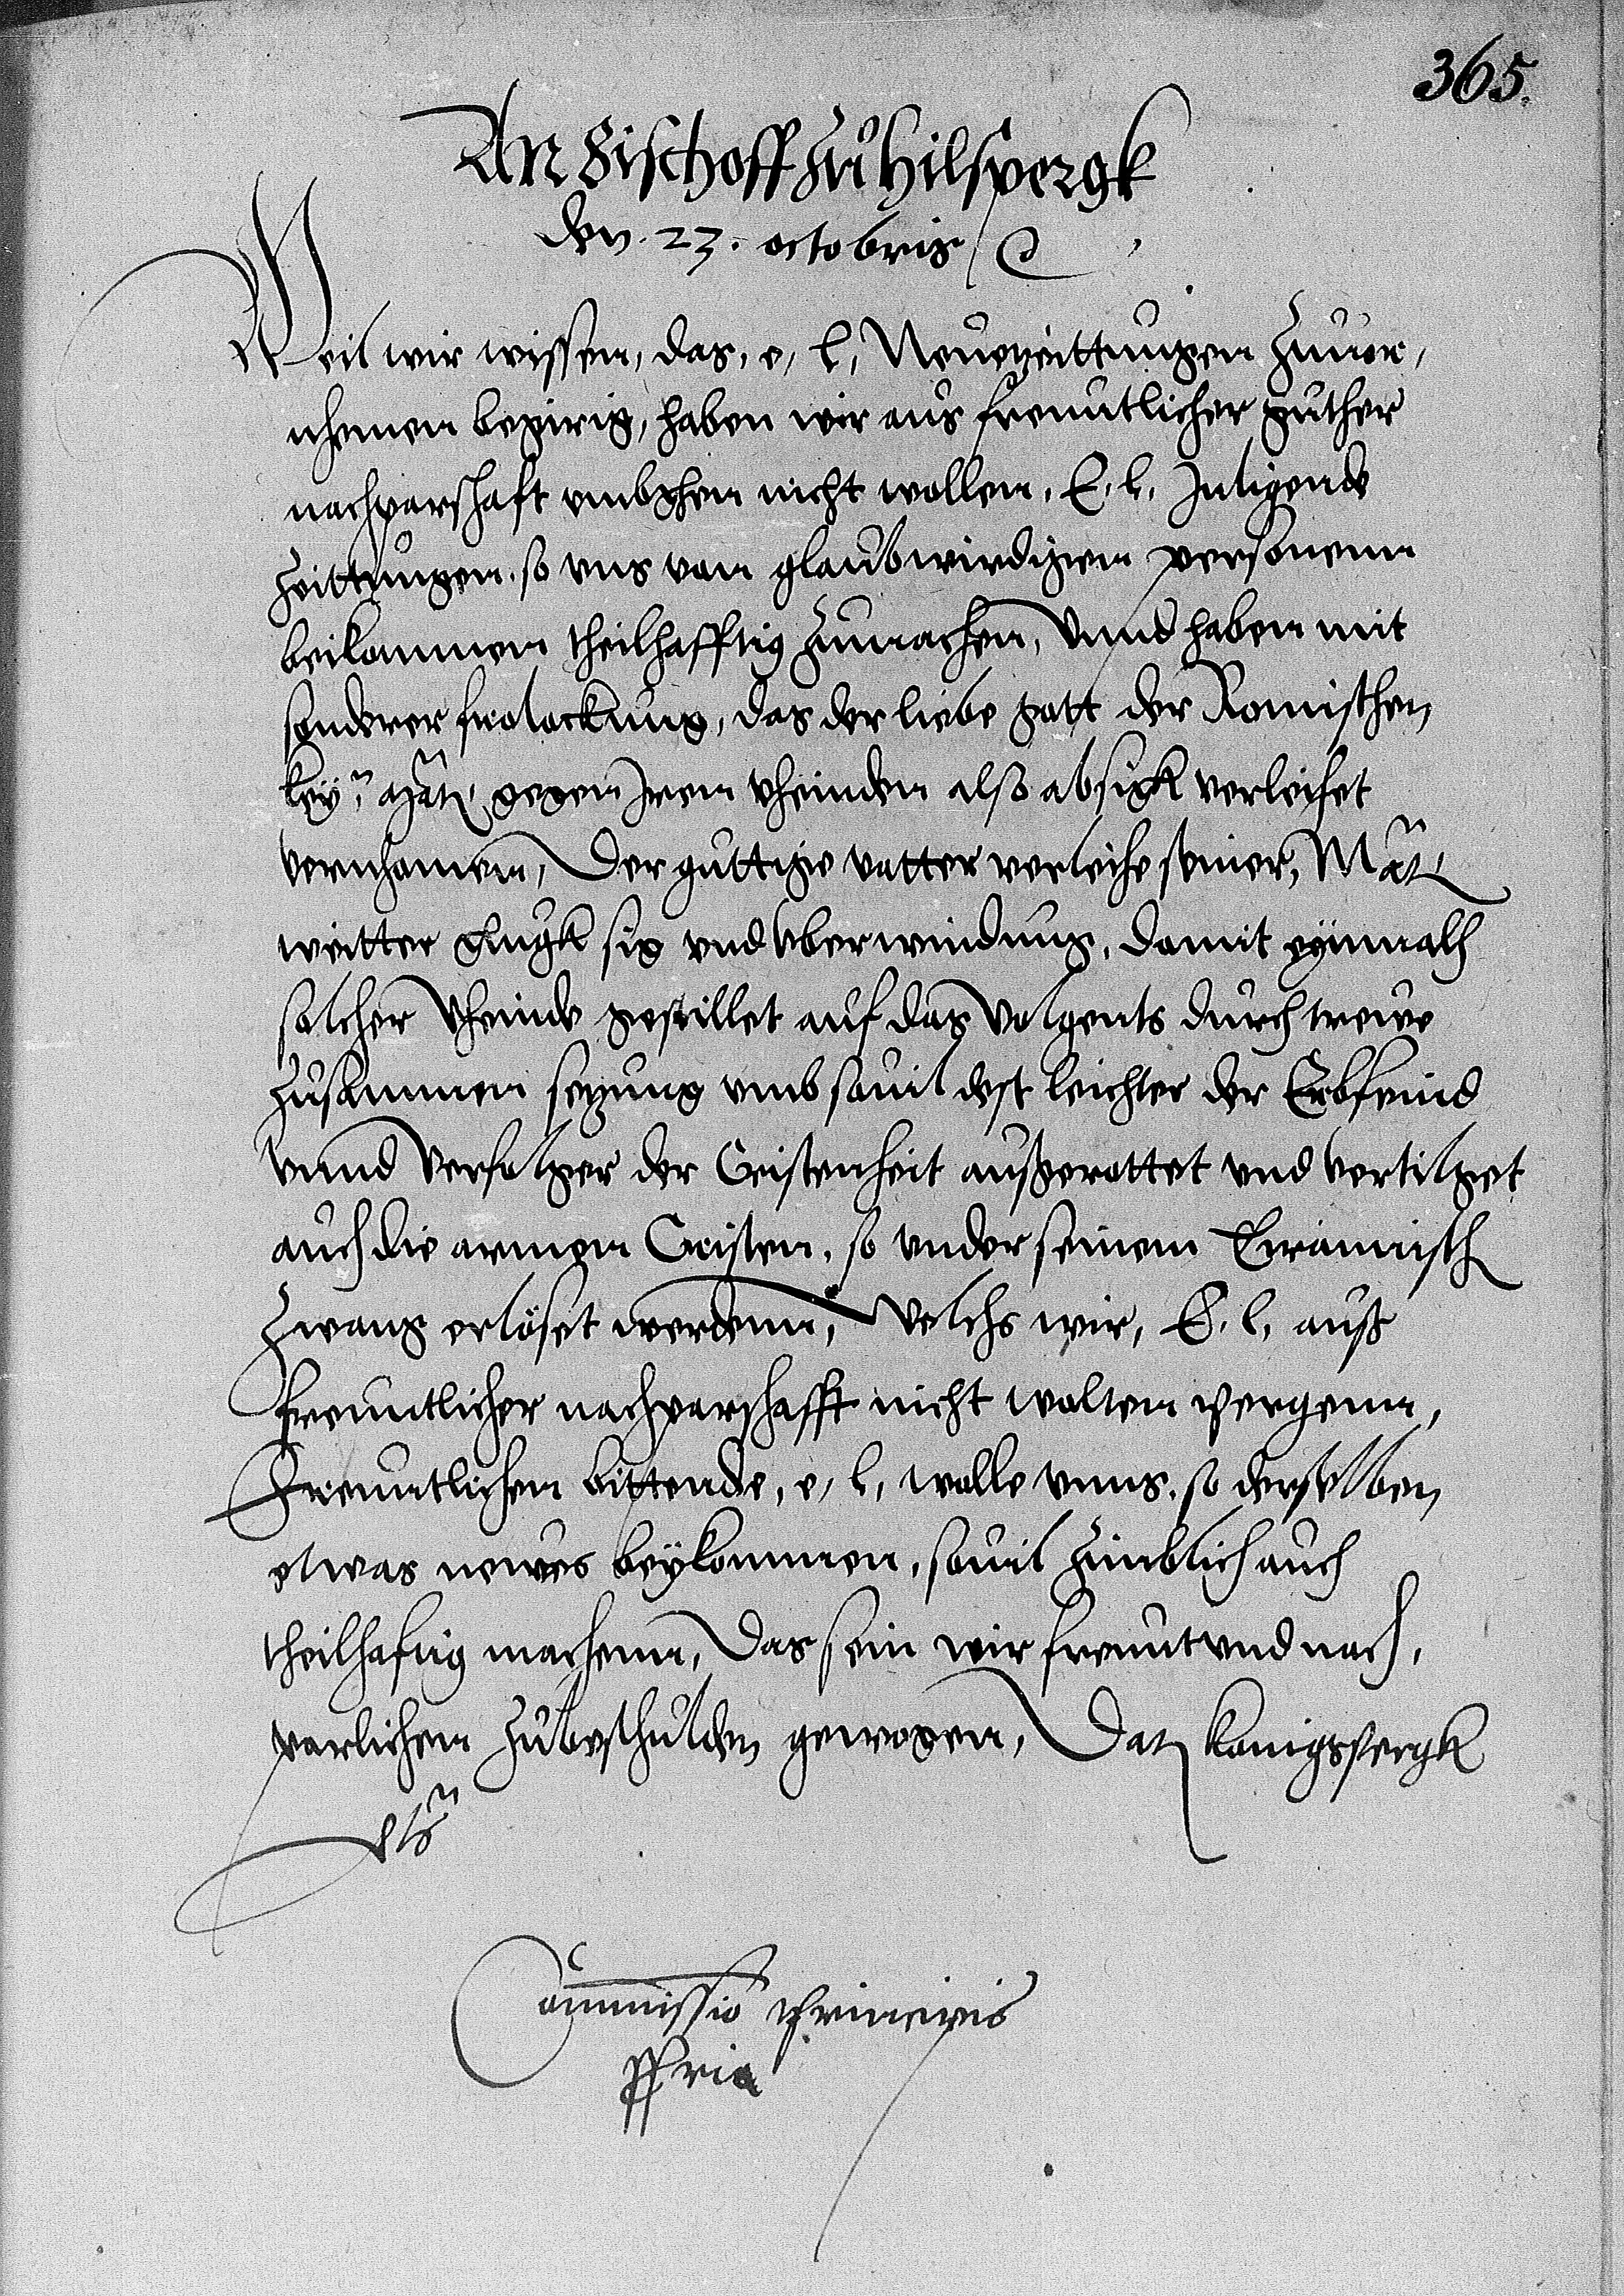 365.
An Bischoff zu Hilspergk
den. 23. octobris
Weil wir wissen, das, e, l, Neuezeittungen zuuor,
nhemen begirig, haben wir aus freuntlicher guther
nachparschaft vmbghen nicht wollen, E, l, Inligende
zeittungen, so vns von glaubwirdigenn personenn
beikommen theilhafftig zumachen, Vnnd haben mit
sonderer frolockung, das der liebe gott der Romischen
key: Mat: gegen Iren Vheinden also absigk verleihet
vernhomen, Der guttige vatter verleihe seiner, Mat,
weitter glugk sig vnd Vberwindung, damit eynmalh
solcher Vheinde gestillet auf das Volgents durch treue
zusammen setzung vmb souil dest leichter der Erbfeind
Vnnd Verfolger der Cristenheit außgerottet vnd Vertilget
auch die armen Cristen, so vnder seinem Tirannisch
Zwang erlöset werdenn, Welchs wir, E, l, auß
freuntlicher nachparschafft nicht wolten pergenn,
Freuntlichen bittende, e, l, wolle vnns, so derselben
etwas newes beykommen, souil zimblich auch
theilhaftig machenn, Das sein wir freunt vnd nach,
parlichen zubeschulden gewogen, Dat Konigspergk
vts
Commissio principis
ppria